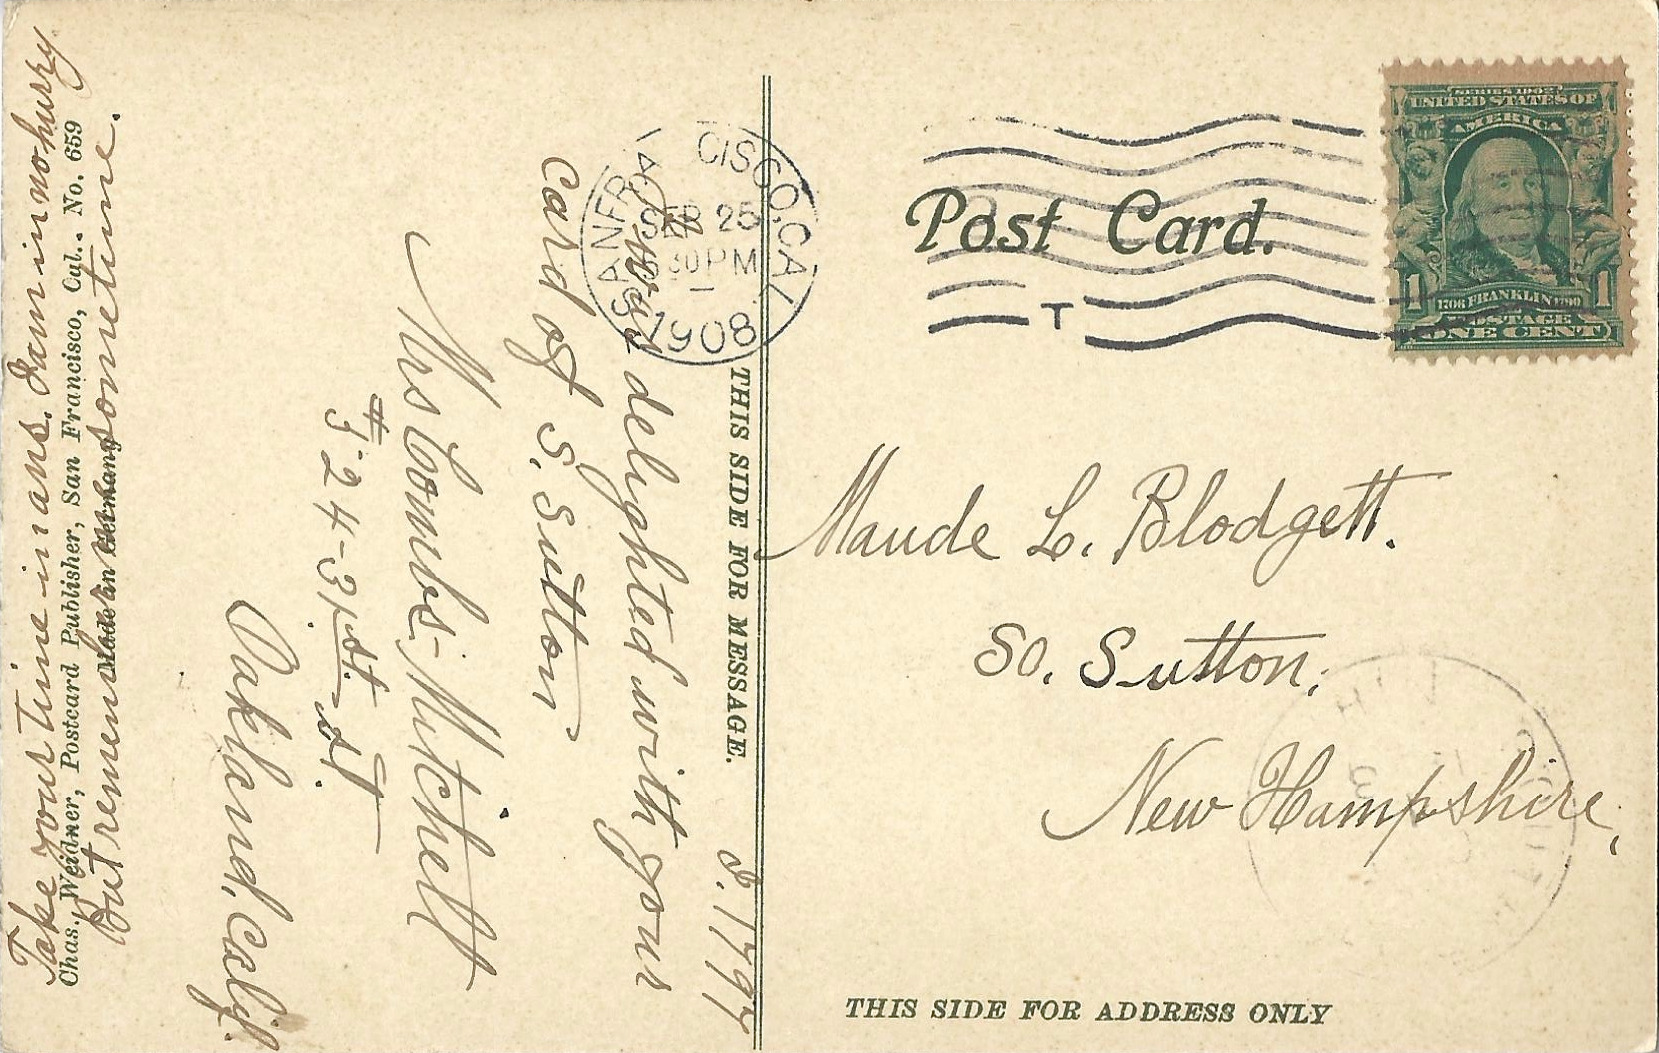 Post Card.
SERIES 1902
UNITED STATES OF
AMERICA
1
1706 FRANKLIN 1790
1
POSTAGE
ONE CENT
SAN FRANCISCO, CAL
SEP 25
30 PM
1908
T
Maude L. Blodgett.
So. Sutton,
New Hampshire,
THIS SIDE FOR ADDRESS ONLY
THIS SIDE FOR MESSAGE.
I was delighted with your
card of S. Sutton
Mrs Combs-Mitchell
24-31st. st.
Oakland, Calif.
Chas. Weidner, Postcard Publisher, San Francisco, Cal.. No. 659
Made in Germany
Take your time in ans. I am in no hurry
But remember sometime.